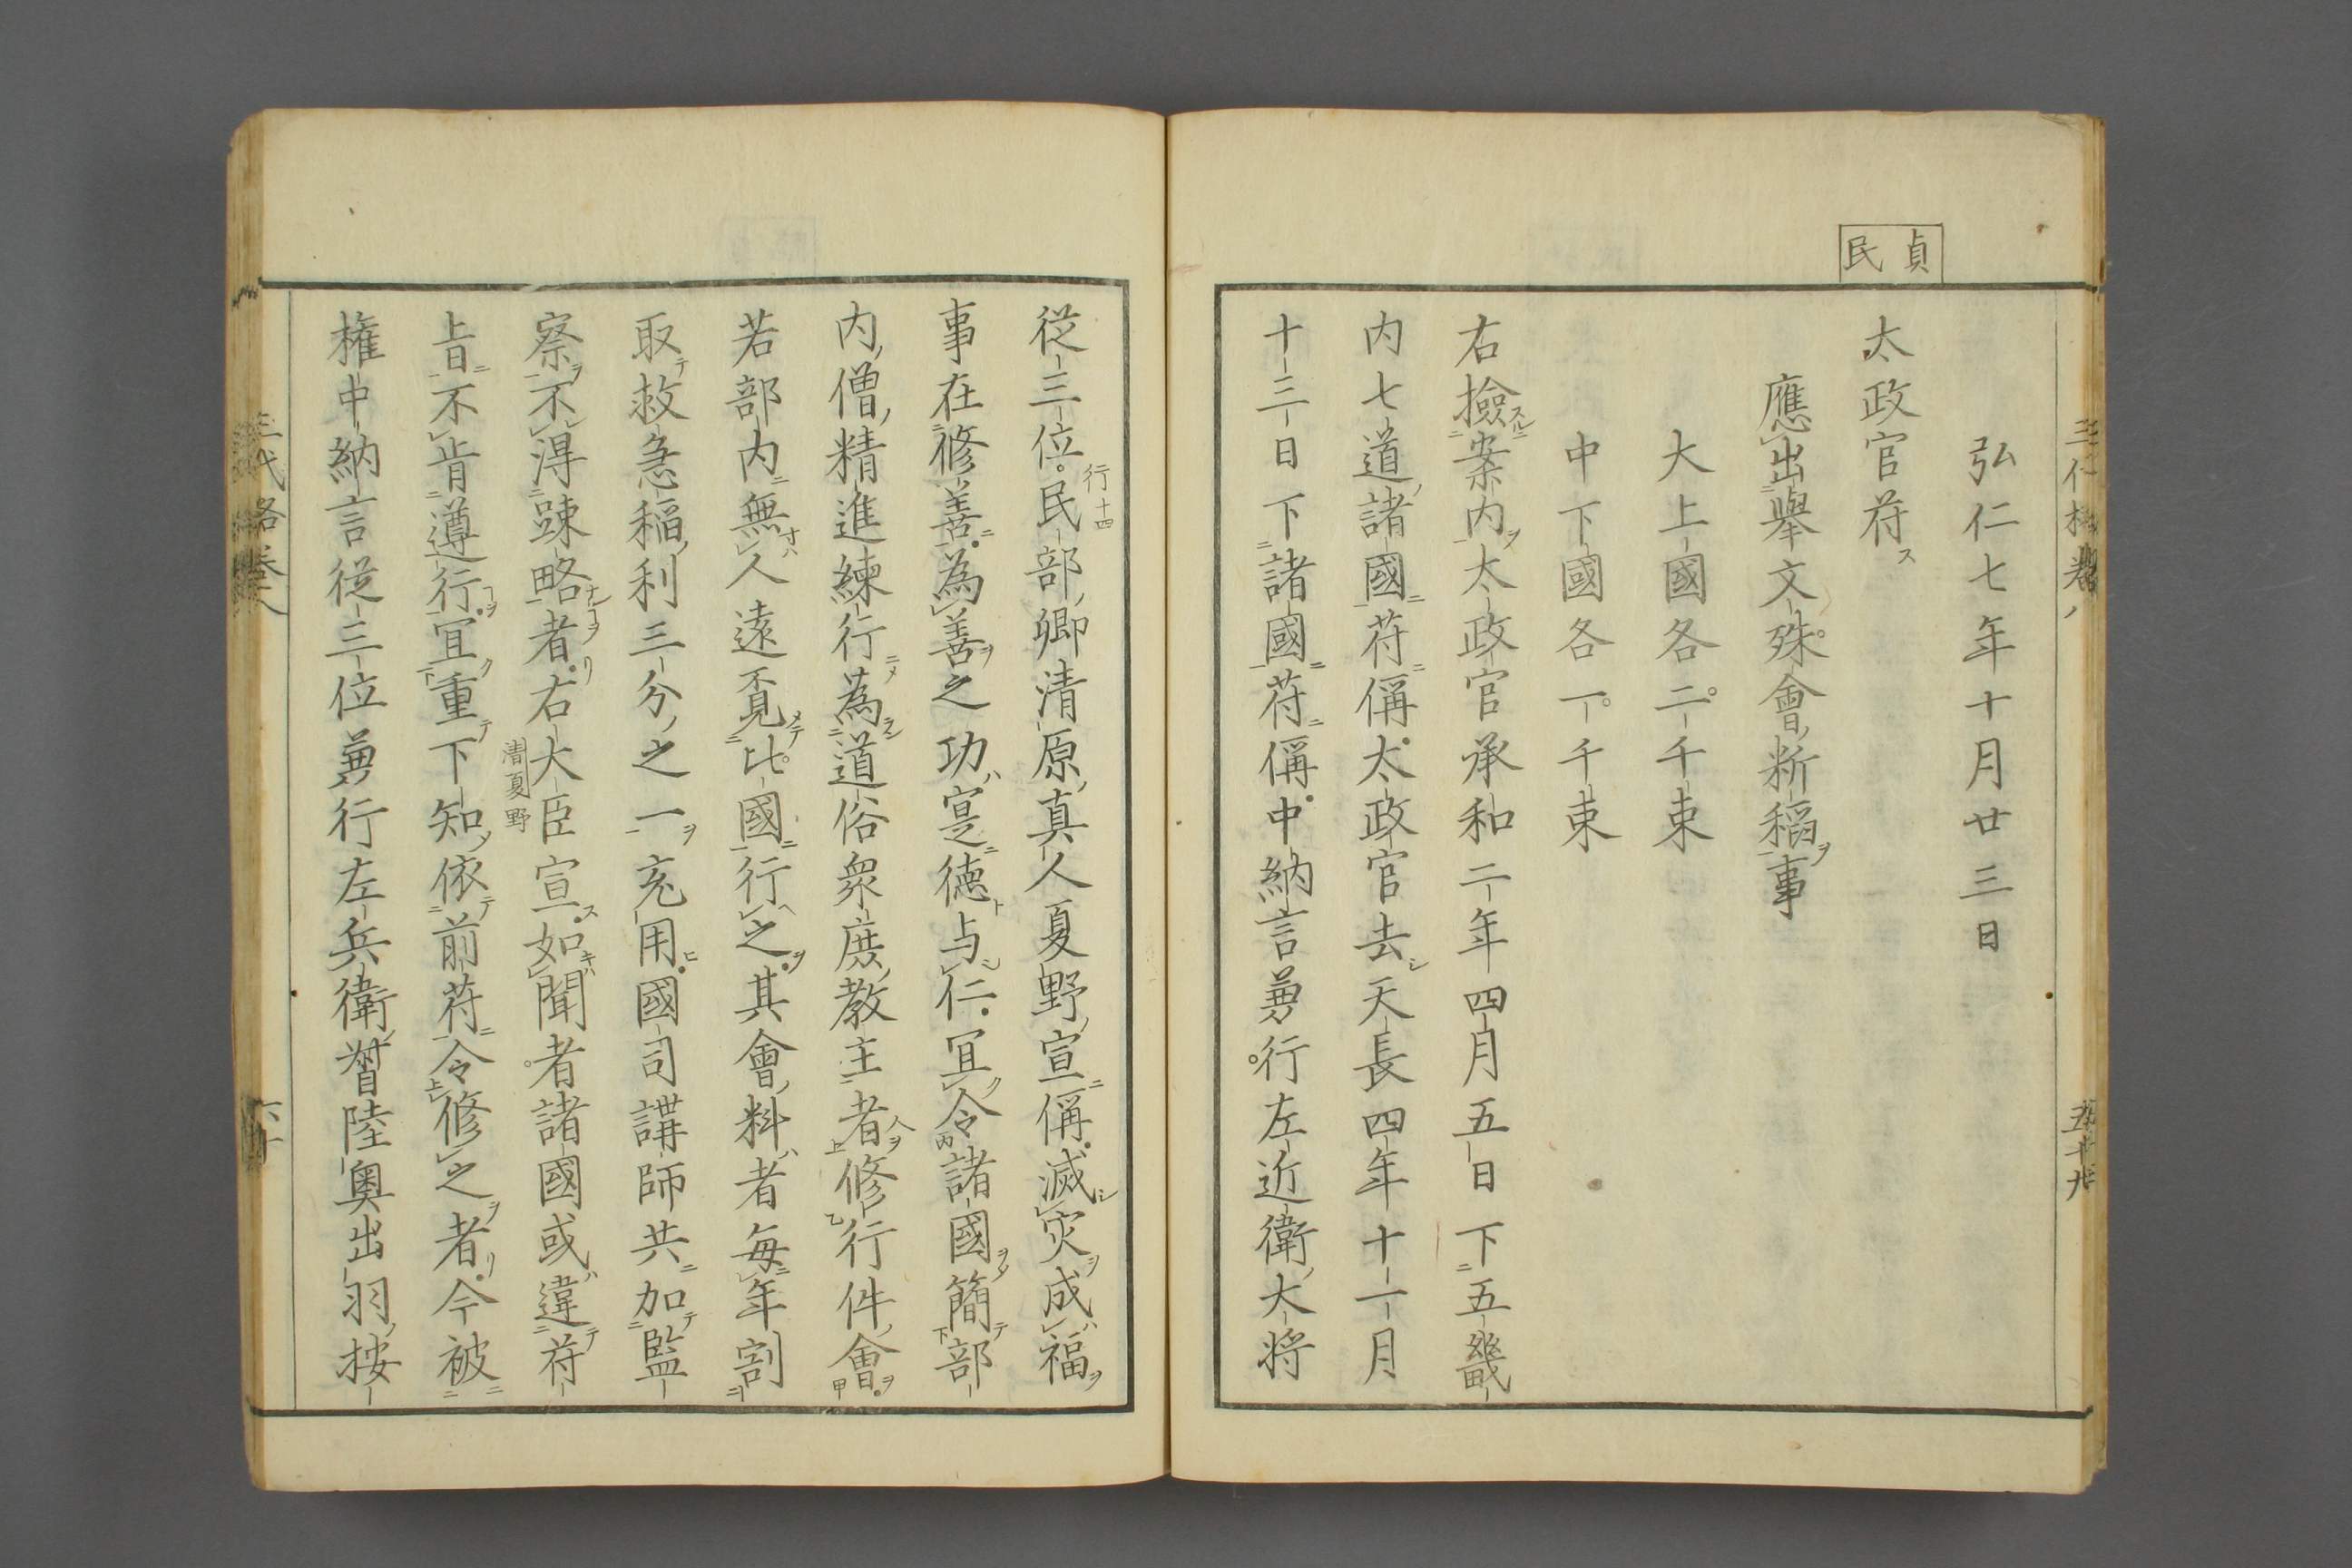 貞民
弘仁七年十月廿三日
太政官苻
應出擧文殊會新稻事
大上國各二千束
中下國各一千束
右撿案内太政官承和二年四月五日下五畿
内七道諸國苻偁太政官去天長四年十一月
十三日下諸國苻偁中納言兼行左近衛大将
五十九
従三位民部卿清原真人夏野宣偁滅灾成福
行十四
事在修善為善之功寔德与仁冝令諸國簡部
内僧精進練行為道俗衆庶教主者修行件會
若部内無人遠覓比國行之其會料者毎年割
取救急稲利三分之一充用國司講師共加監
察不得踈略者右大臣宣如聞者諸國或違苻
清夏野
旨不肯遵行冝重下知依前苻令修之者今被
権中納言従三位兼行左兵衛督陸奥出羽按
三代格巻八
六十